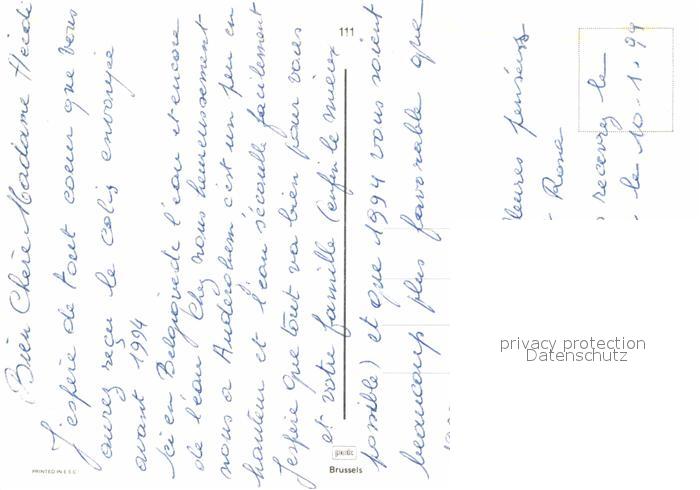 Bien Chère Madame Heidi
J'espère de tout coeur que vous
aurez reçu le colis envoyée
avant 1994
Ici en Belgique de l'eau et encore
de l'eau Chez nous heureusement
nous a Auderghem c'est un peu en
hauteur et l'eau s'écoulle facilement
J'espère que tout va bien pour vous
et votre famille (enfin le mieux
possible) et que 1994 vous soient
beaucoup plus favorable que
leures pensées
Rose
recevrez le
le 10.1.94
111
PRINTED IN E.E.C.
Brussels
privacy protection
Datenschutz